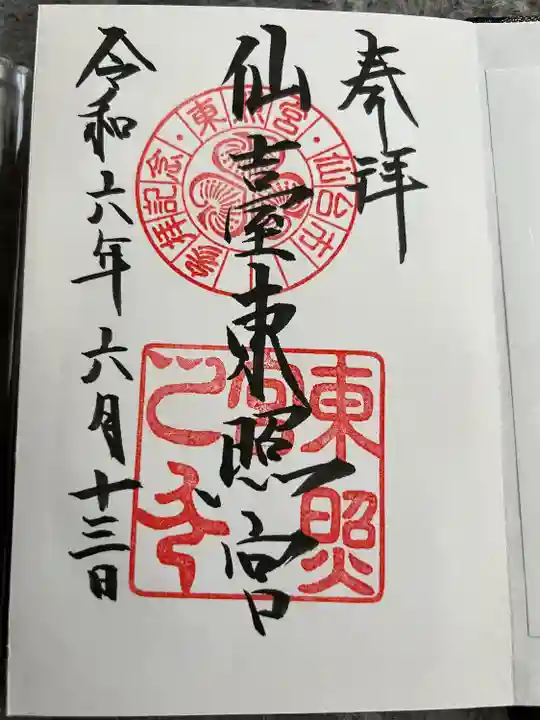 奉拝
仙臺東照宮
令和六年六月十三日
東照宮・仙台市・参拝記念
東照宮